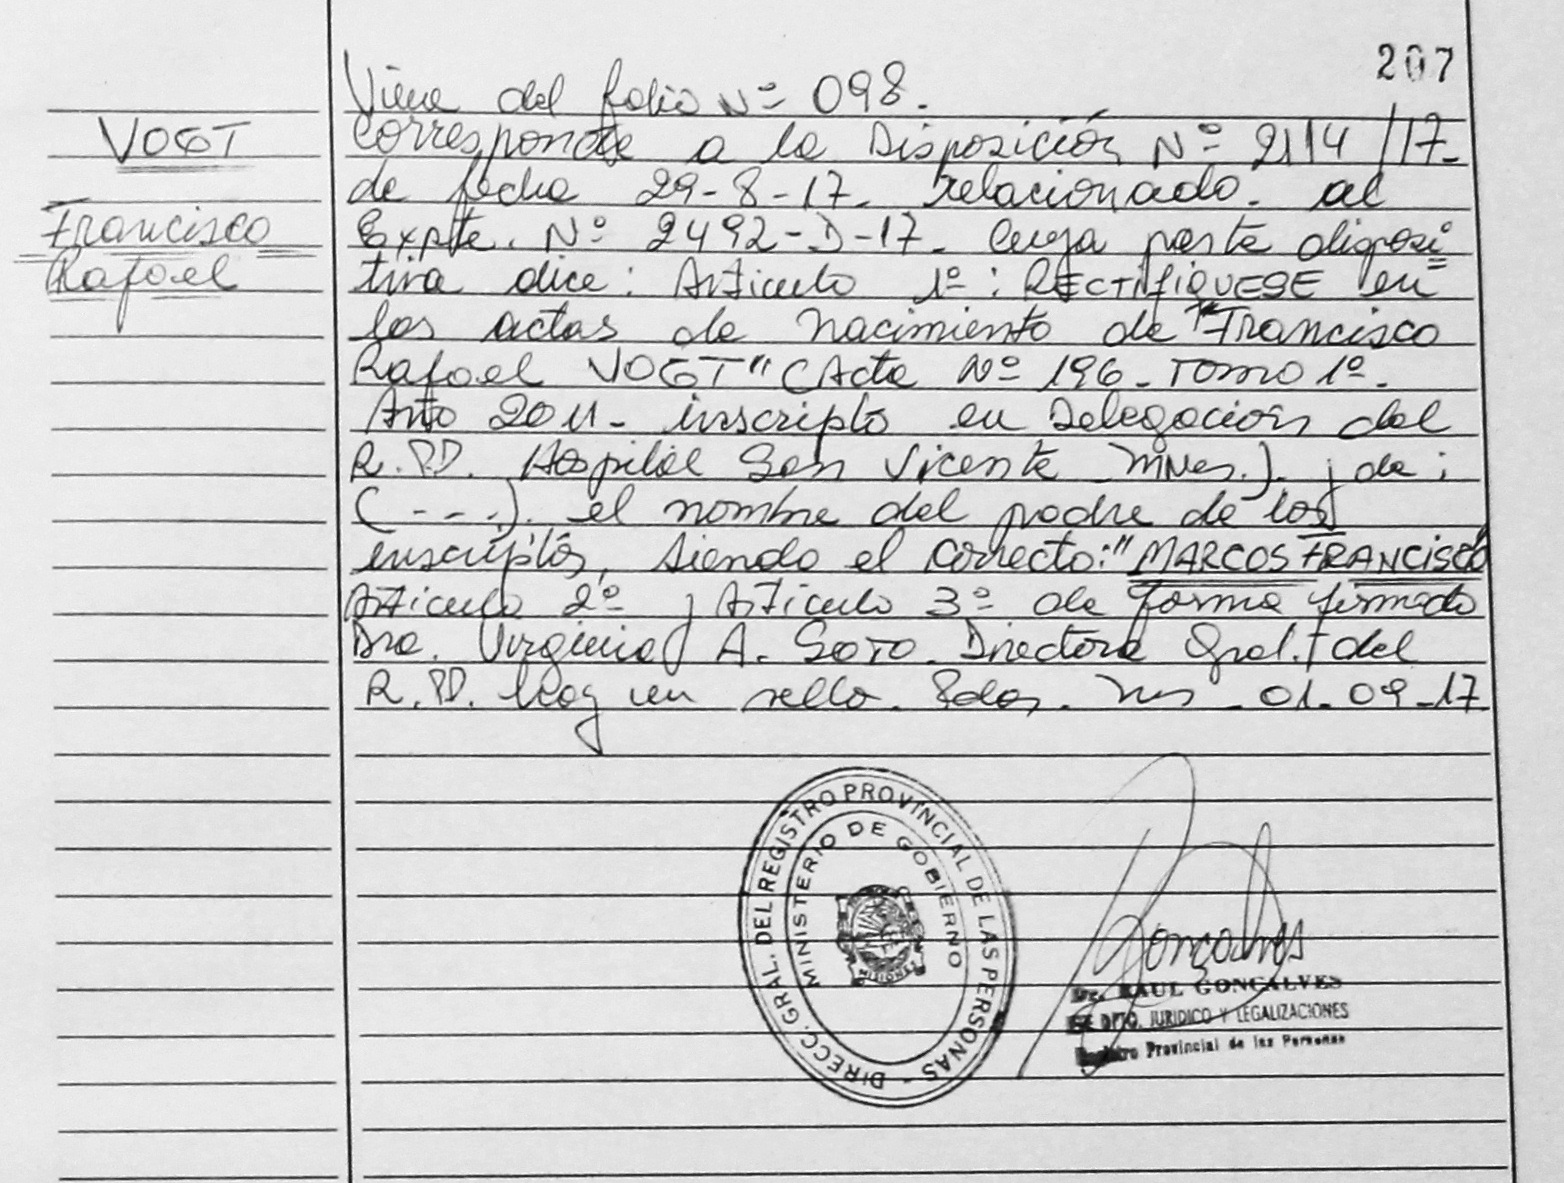 207
VOGT
Francisco
Rafael
Viene del folio Nº 098.
Corresponde a la Disposición Nº 2114/17-
de fecha 29-8-17. relacionado. al
Expte. Nº 2492-D-17- cuya parte disposi=
tiva dice: Artículo 1º: RECTIFIQUESE en
las actas de nacimiento de "Francisco
Rafael VOGT" (Acta Nº 196- Tomo 1º-
Año 2011- inscripto en Delegación del
R.P.P. Hospital San Vicente Mnes.). y de:
(---). el nombre del padre de los
inscriptos, siendo el correcto: "MARCOS FRANCISCO"
Artículo 2º y Artículo 3º de forma firmado
Dra. Virginia A. SOTO. Directora Gral. del
R.P.P. hay un sello. Pdas. Mnes. 01-09-17
DIRECC. GRAL. DEL REGISTRO PROVINCIAL DE LAS PERSONAS -
MINISTERIO DE GOBIERNO
MISIONES
Goncalves
Dr. RAUL GONCALVES
DPTO. JURIDICO Y LEGALIZACIONES
Registro Provincial de las Personas